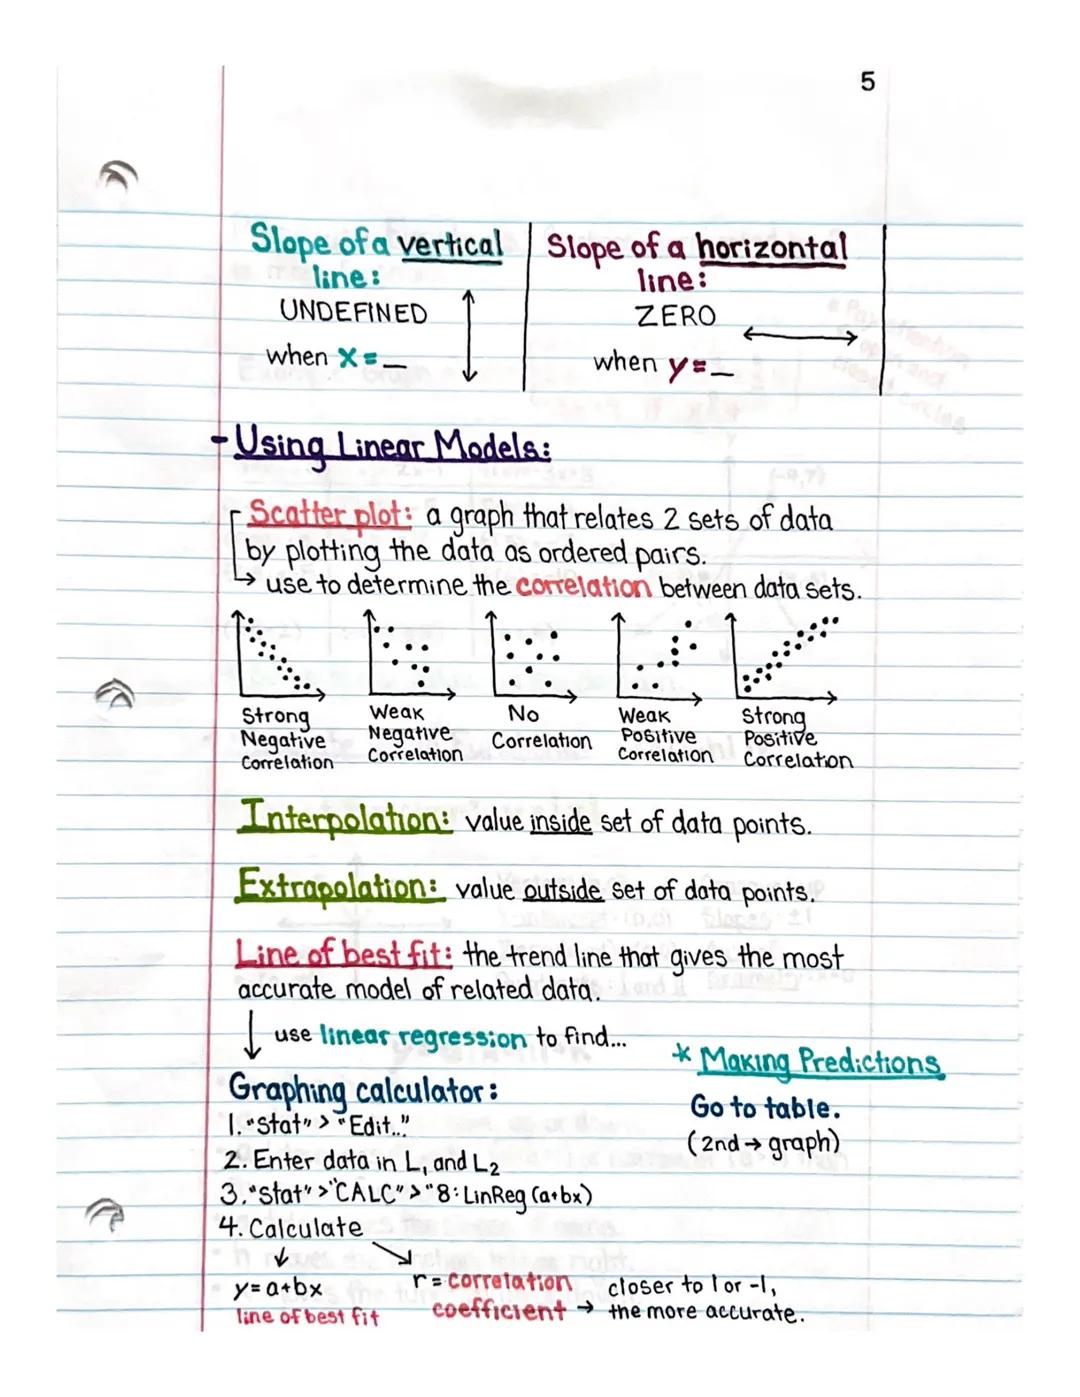 5
Slope of a vertical
line:
UNDEFINED
when x = _
Slope of a horizontal
line:
ZERO
when y = _
- Using Linear Models:
Scatter plot: a graph that relates 2 sets of data
by plotting the data as ordered pairs.
↳ use to determine the correlation between data sets.
Strong
Negative
Correlation
Weak
Negative
Correlation
No
Correlation
Weak
Positive
Correlation
Strong
Positive
Correlation
Interpolation: value inside set of data points.
Extrapolation: value outside set of data points.
Line of best fit: the trend line that gives the most
accurate model of related data.
↓ use linear regression to find...
Graphing calculator:
1. "Stat" > "Edit..."
2. Enter data in L₁ and L₂
3. "Stat" > "CALC" > "8: LinReg (a+bx)
4. Calculate
y = a+bx
line of best fit
r = correlation
coefficient → closer to 1 or -1,
the more accurate.
* Making Predictions
Go to table.
(2nd → graph)